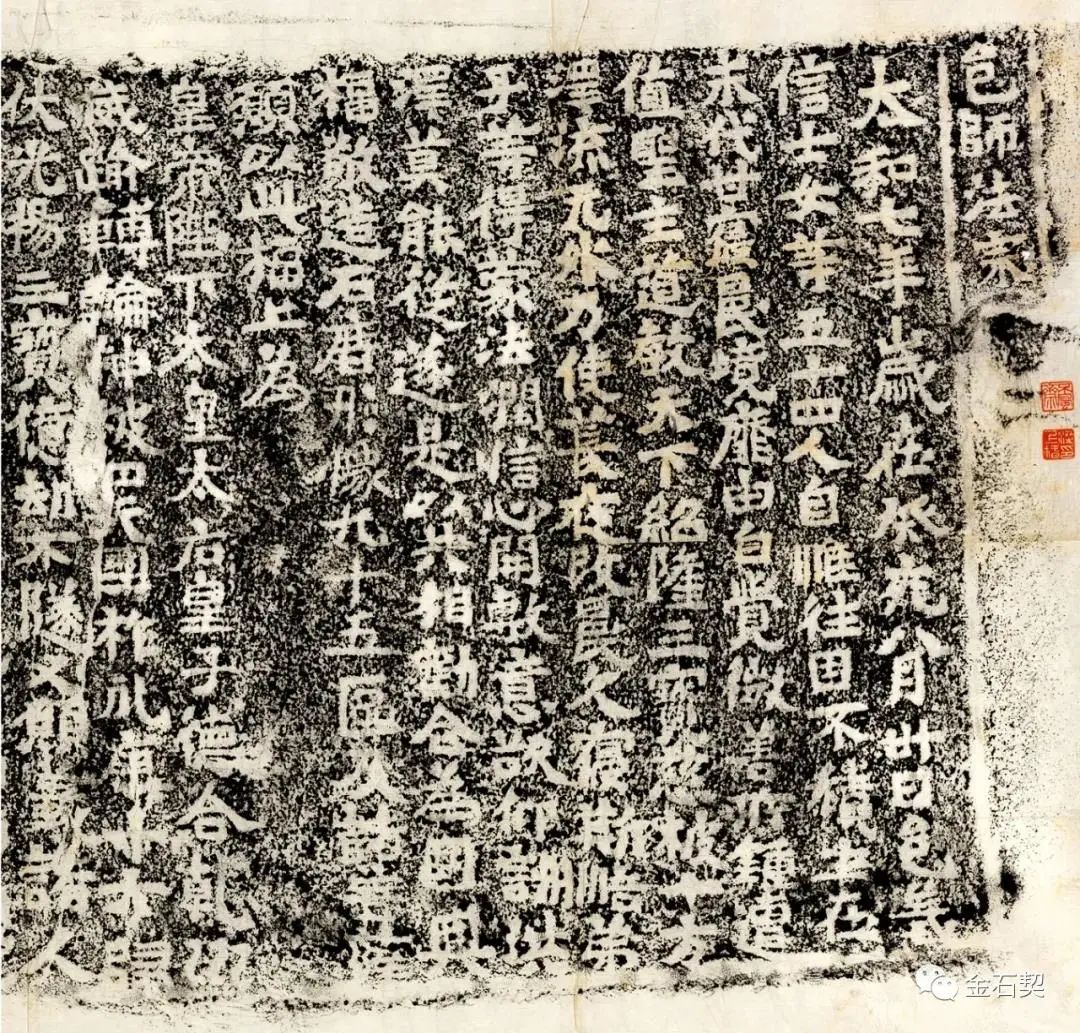 邑師法宗
太和七年歲在癸亥八月卅日邑義
信士女等五十四人自惟往因不積生在
末代甘寢昏境靡由自覺微善所鍾遭
值聖主道教天下紹隆三寶慈被十方
澤流无外乃使長夜改昏久寢斯悟弟
子等得蒙法潤信心開敷意欲仰詶洪
澤莫能從遂是以共相勸合為國興
福敬造石廟形像九十五區及諸菩薩
願以此福上為
皇帝陛下太皇太后皇子德合乾坤
威踰轉輪神被四天國祚永康十方歸
伏光揚三寶億劫不墜又願義諸人
金石契